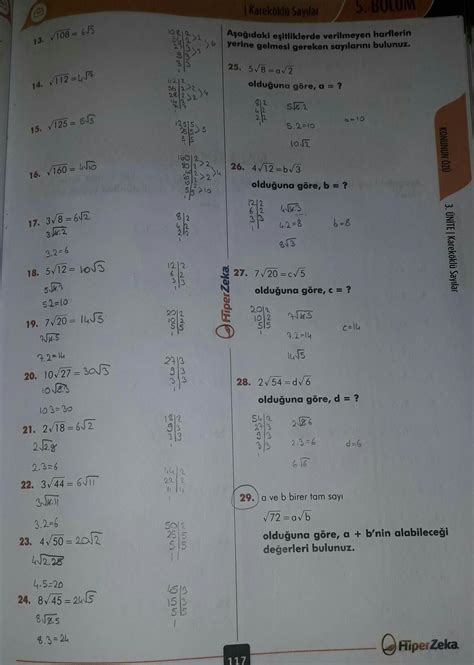 Kareköklü Sayılar
5. BÖLÜM
13. √108 = 6√3
14. √112 = 4√7
15. √125 = 5√5
16. √160 = 4√10
17. 3√8 = 6√2
3.2=6
18. 5√12 = 10√3
5√4.3
5.2=10
19. 7√20 = 14√5
7√4.5
7.2=14
20. 10√27 = 30√3
10.3=30
21. 2√18 = 6√2
2.3=6
22. 3√44 = 6√11
3√4.11
3.2=6
23. 4√50 = 20√2
4√2.25
4.5=20
24. 8√45 = 24√5
8.3=24
Aşağıdaki eşitliklerde verilmeyen harflerin
yerine gelmesi gereken sayılarını bulunuz.
25. 5√8 = a√2
olduğuna göre, a = ?
5.2=10
a=10
10√2
26. 4√12 = b√3
olduğuna göre, b = ?
4√4.3
4.2=8
b=8
8√3
27. 7√20 = c√5
olduğuna göre, c = ?
7√4.5
7.2=14
c=14
14√5
28. 2√54 = d√6
olduğuna göre, d = ?
2.3=6
d=6
6√6
29. a ve b birer tam sayı
√72 = a√b
olduğuna göre, a + b'nin alabileceği
değerleri bulunuz.
KONUNUN ÖZÜ
3. ÜNİTE | Kareköklü Sayılar
HiperZeka
117
HiperZeka